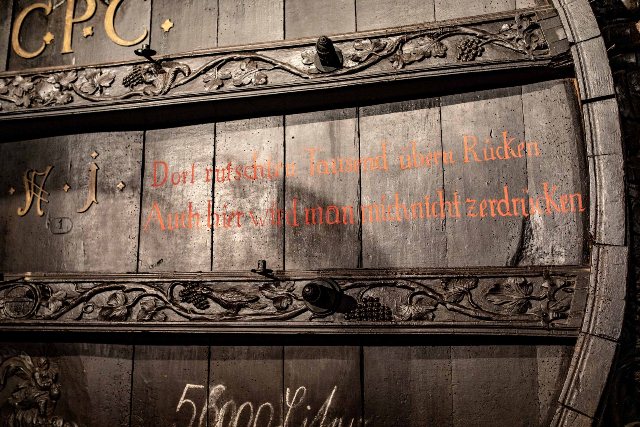 C.P.C.
A. i.
1
Dort rutschten Tausend übern Rücken
Auch hier wird man mich nicht zerdrücken
56000 Liter